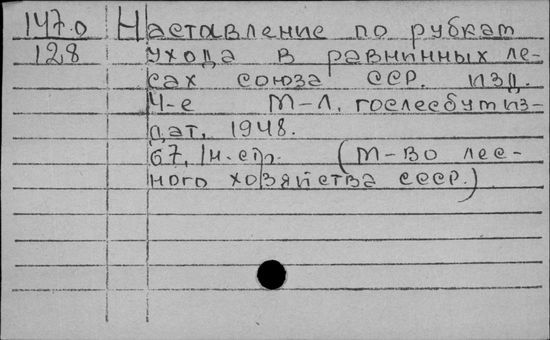 147.0 Наставление по рубкам
128 ухода в равнинных ле-
сах союза ССР. изд.
4-е М-Л, гослесбумиз-
дат, 1948.
67, 1н. стр. (М-во лес-
ного хозяйства СССР.)